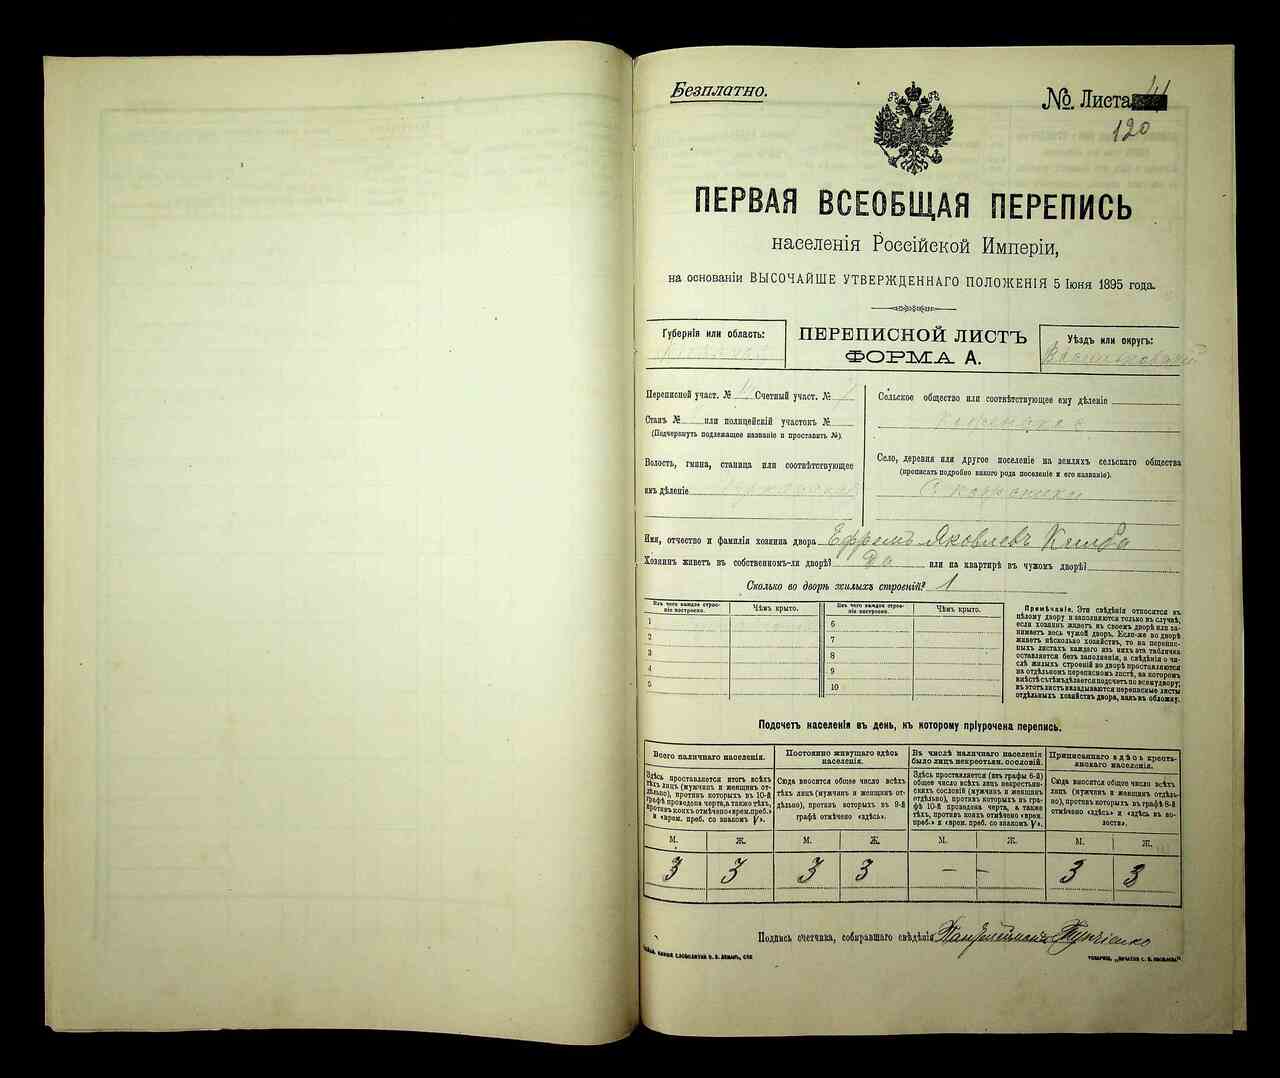 Безплатно.
№ Листа
120
ПЕРВАЯ ВСЕОБЩАЯ ПЕРЕПИСЬ
населенія Россійской Имперіи,
на основаніи ВЫСОЧАЙШЕ УТВЕРЖДЕННАГО ПОЛОЖЕНІЯ 5 Іюня 1895 года.
Губернія или область:
ПЕРЕПИСНОЙ ЛИСТЪ
ФОРМА А.
Уѣздъ или округъ:
Васильковскій
Переписной участ. № Счетный участ. №
Станъ № или полицейскій участокъ №
(Подчеркнуть подлежащее названіе и проставить №).
Волость, гмина, станица или соотвѣтствующее
имъ дѣленіе
Сельское общество или соотвѣтствующее ему дѣленіе
Село, деревня или другое поселеніе на земляхъ сельскаго общества
(прописать подробно какого рода поселеніе и его названіе).
Имя, отчество и фамилія хозяина двора Ефремъ Яковлевъ
Хозяинъ живетъ въ собственномъ-ли дворѣ? Да или на квартирѣ въ чужомъ дворѣ?
Сколько во дворѣ жилыхъ строеній? 1
Изъ чего каждое строеніе построено.
Чѣмъ крыто.
Изъ чего каждое строеніе построено.
Чѣмъ крыто.
1 6
2 7
3 8
4 9
5 10
Примѣчаніе. Эти свѣдѣнія относятся къ
цѣлому двору и заполняются только въ случаѣ,
если хозяинъ живетъ въ своемъ дворѣ или занимаетъ
весь чужой дворъ. Если-же во дворѣ
живетъ нѣсколько хозяйствъ, то на переписныхъ
листахъ каждаго изъ нихъ эта табличка
оставляется безъ заполненія, а свѣдѣнія о числѣ
жилыхъ строеній во дворѣ проставляются
на отдѣльномъ переписномъ листѣ, на которомъ
вмѣстѣ съ тѣмъ дѣлается подсчетъ по всему двору;
въ этотъ листъ вкладываются переписные листы
отдѣльныхъ хозяйствъ двора, какъ въ обложку.
Подсчетъ населенія въ день, къ которому пріурочена перепись.
Всего наличнаго населенія.
Здѣсь проставляется итогъ всѣхъ
тѣхъ лицъ (мужчинъ и женщинъ отдѣльно),
противъ которыхъ въ 10-й
графѣ проведена черта, а также тѣхъ,
противъ коихъ отмѣчено «врем. преб.»
и «врем. преб. со знакомъ V».
Постоянно живущаго здѣсь
населенія.
Сюда вносится общее число всѣхъ
тѣхъ лицъ (мужчинъ и женщинъ отдѣльно),
противъ которыхъ въ 9-й
графѣ отмѣчено «здѣсь».
Въ числѣ наличнаго населенія
было лицъ некрестьян. сословій.
Здѣсь проставляется (изъ графы 6-й)
общее число всѣхъ лицъ некрестьянскихъ
сословій (мужчинъ и женщинъ
отдѣльно), противъ которыхъ въ графѣ
10-й проведена черта, а также
тѣхъ, противъ коихъ отмѣчено «врем.
преб.» и «врем. преб. со знакомъ V».
Приписаннаго здѣсь крестьянскаго
населенія.
Сюда вносится общее число всѣхъ
лицъ (мужчинъ и женщинъ отдѣльно),
противъ которыхъ въ графѣ 8-й
отмѣчено «здѣсь» и «здѣсь въ волости».
М. Ж. М. Ж. М. Ж. М. Ж.
3 3 3 3 – – 3 3
Подпись счетчика, собиравшаго свѣдѣнія